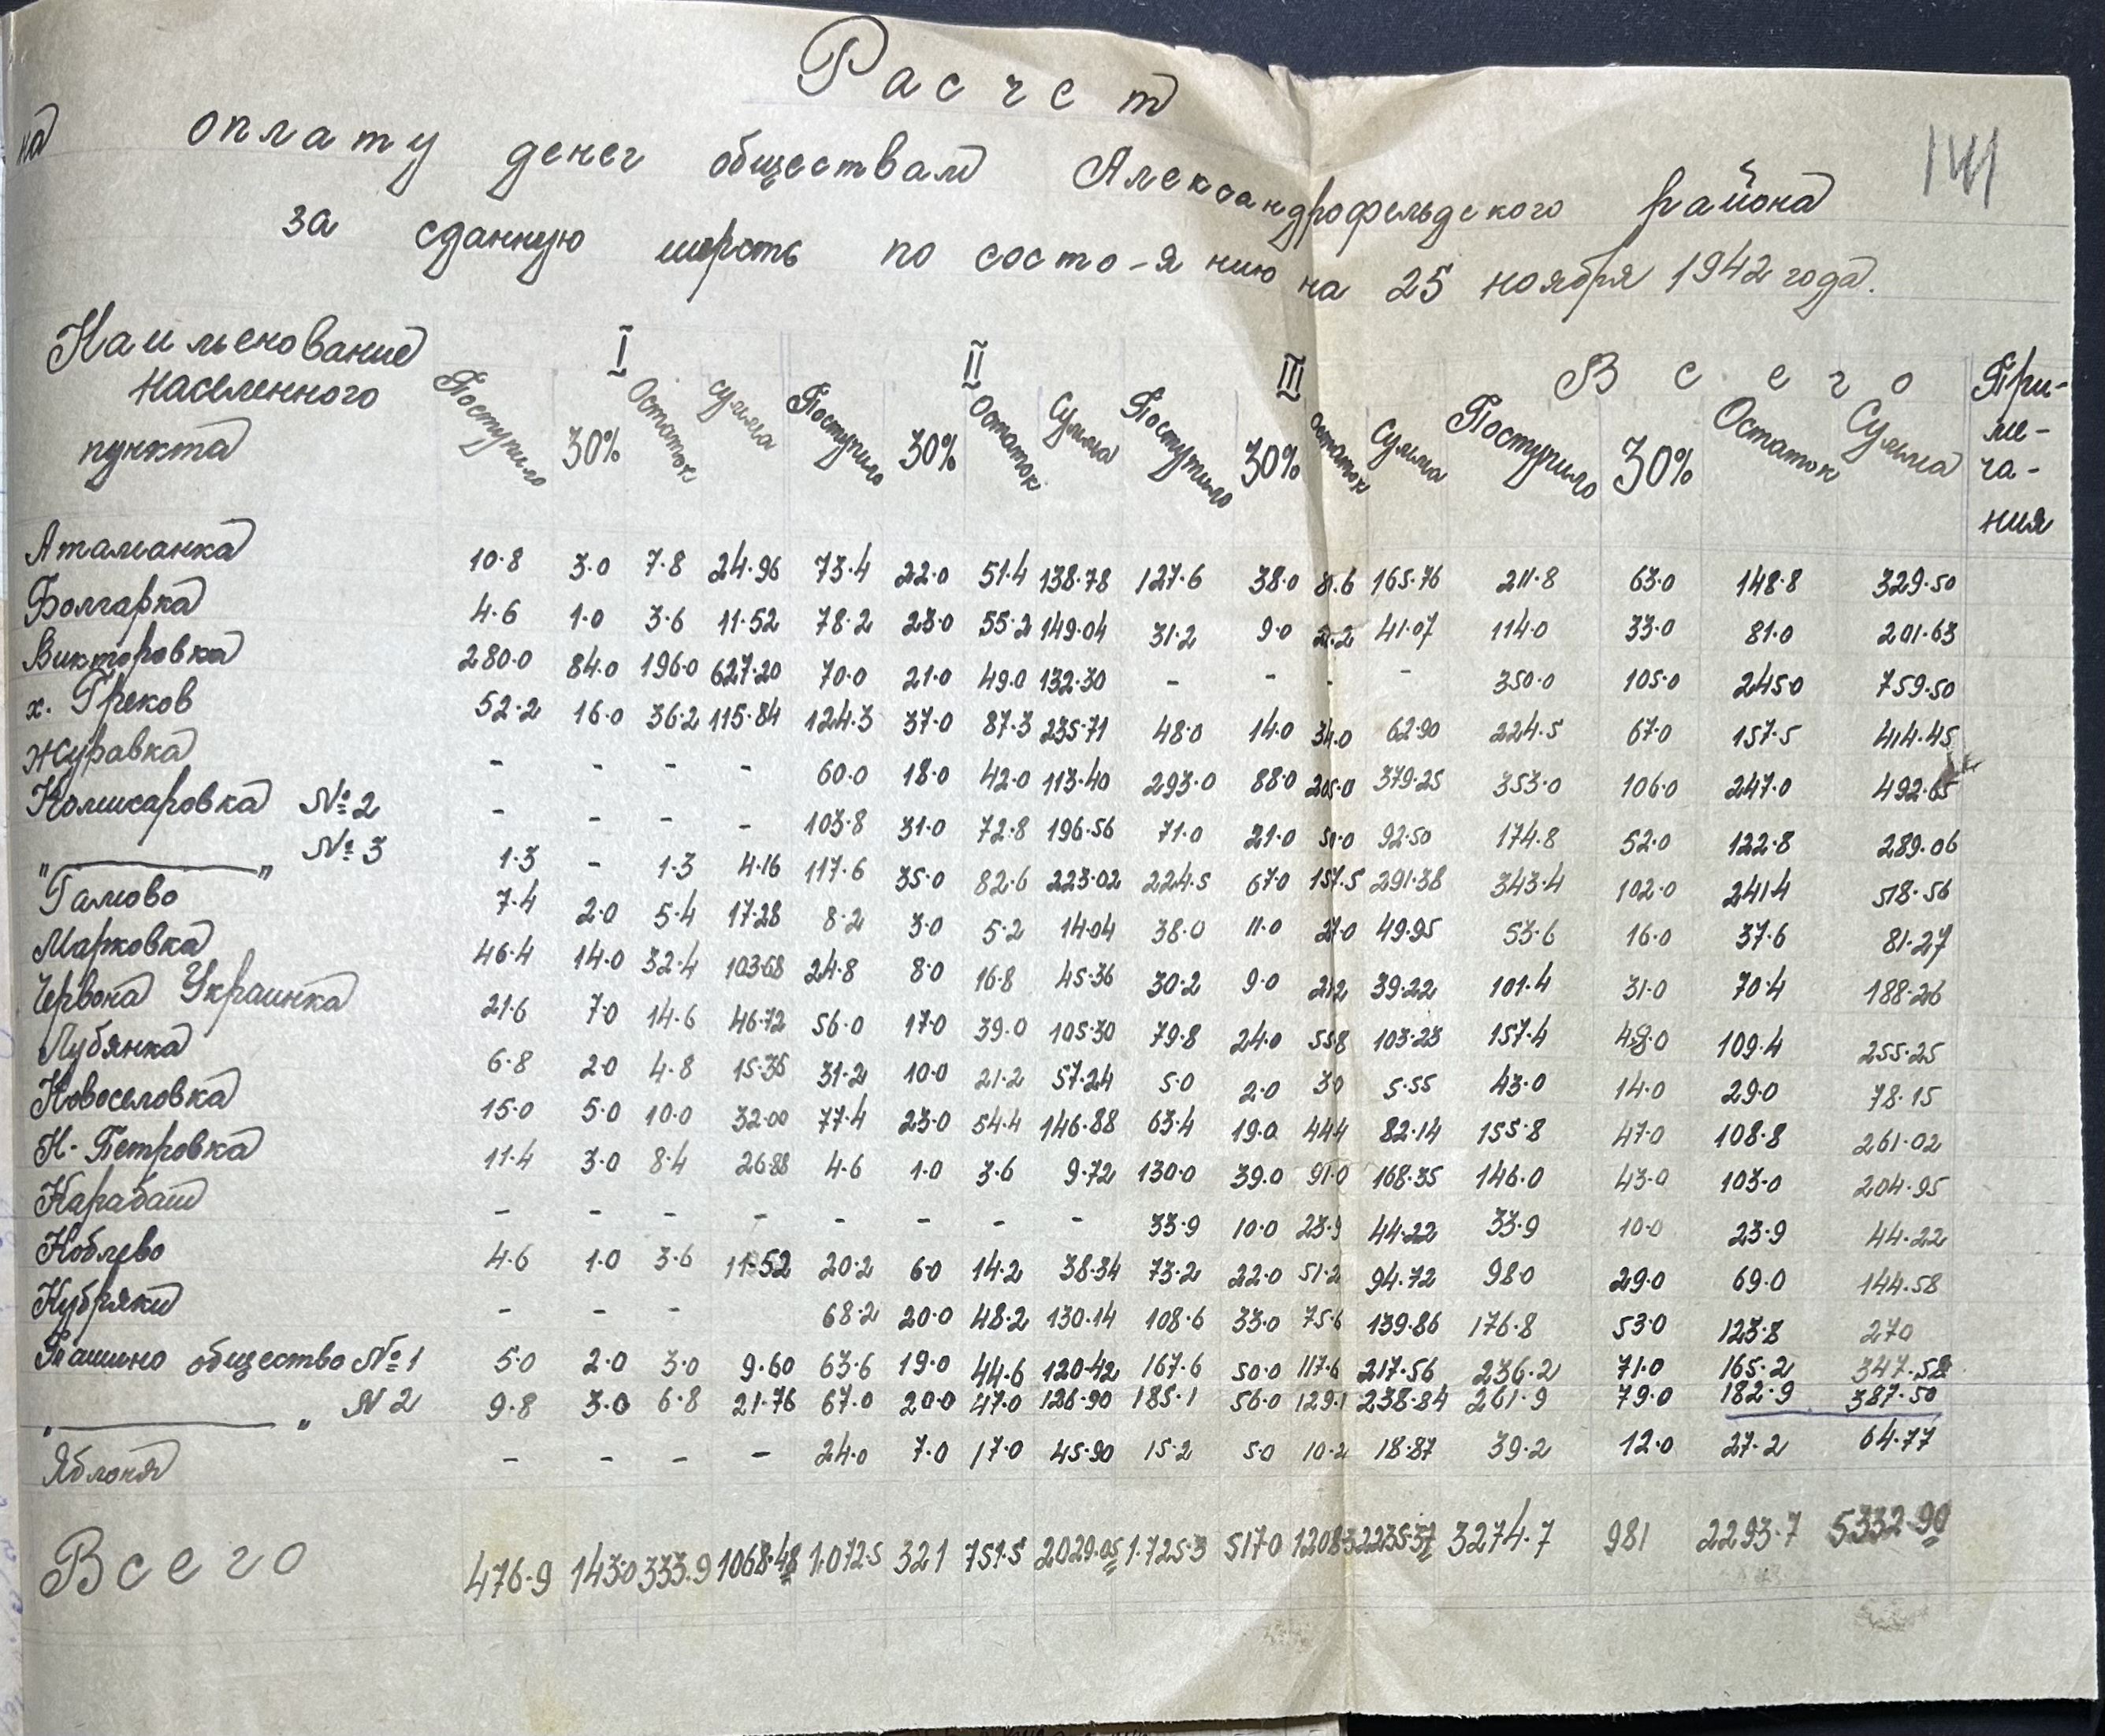 141
Расчет
на оплату денег обществам Александрофельдского района
за сданную шерсть по состо-янию на 25 ноября 1942 года.
Наименование населенного пункта I II III Всего При-ме-ча-ния
Поступило 30% Остаток сумма Поступило 30% Остаток Сумма Поступило 30% остаток Сумма Поступило 30% Остаток Сумма
Атаманка 10.8 3.0 7.8 24.96 73.4 22.0 51.4 138.78 127.6 38.0 89.6 165.76 211.8 63.0 148.8 329.50
Болгарка 4.6 1.0 3.6 11.52 78.2 23.0 55.2 149.04 31.2 9.0 22.2 41.07 114.0 33.0 81.0 201.63
Викторовка 280.0 84.0 196.0 627.20 70.0 21.0 49.0 132.30 - - - - 350.0 105.0 245.0 759.50
х. Греков 52.2 16.0 36.2 115.84 124.3 37.0 87.3 235.71 48.0 14.0 34.0 62.90 224.5 67.0 157.5 414.45
Журавка - - - - 60.0 18.0 42.0 113.40 293.0 88.0 205.0 379.25 353.0 106.0 247.0 492.65
Комисаровка №2 - - - - 103.8 31.0 72.8 196.56 71.0 21.0 50.0 92.50 174.8 52.0 122.8 289.06
"———" №3 1.3 - 1.3 4.16 117.6 35.0 82.6 223.02 224.5 67.0 157.5 291.38 343.4 102.0 241.4 518.56
Гамово 7.4 2.0 5.4 17.28 8.2 3.0 5.2 14.04 38.0 11.0 27.0 49.95 53.6 16.0 37.6 81.27
Марковка 46.4 14.0 32.4 103.68 24.8 8.0 16.8 45.36 30.2 9.0 21.2 39.22 101.4 31.0 70.4 188.26
Червона Украинка 21.6 7.0 14.6 46.72 56.0 17.0 39.0 105.30 79.8 24.0 55.8 103.23 157.4 48.0 109.4 255.25
Лубянка 6.8 2.0 4.8 15.36 31.2 10.0 21.2 57.24 5.0 2.0 3.0 5.55 43.0 14.0 29.0 78.15
Новоселовка 15.0 5.0 10.0 32.00 77.4 23.0 54.4 146.88 63.4 19.0 44.4 82.14 155.8 47.0 108.8 261.02
Н. Петровка 11.4 3.0 8.4 26.88 4.6 1.0 3.6 9.72 130.0 39.0 91.0 168.35 146.0 43.0 103.0 204.95
Карабаш - - - - - - - - 33.9 10.0 23.9 44.22 33.9 10.0 23.9 44.22
Коблево 4.6 1.0 3.6 11.52 20.2 6.0 14.2 38.34 73.2 22.0 51.2 94.72 98.0 29.0 69.0 144.58
Кубряки - - - 68.2 20.0 48.2 130.14 108.6 33.0 75.6 139.86 176.8 53.0 123.8 270
Ташино общество №1 5.0 2.0 3.0 9.60 63.6 19.0 44.6 120.42 167.6 50.0 117.6 217.56 236.2 71.0 165.2 347.58
"———" N2 9.8 3.0 6.8 21.76 67.0 20.0 47.0 126.90 185.1 56.0 129.1 238.84 261.9 79.0 182.9 387.50
Яблоня - - - - 24.0 7.0 17.0 45.90 15.2 5.0 10.2 18.87 39.2 12.0 27.2 64.77
Всего 476.9 143.0 333.9 1068.48 1.072.5 321 751.5 2029.05 1.725.3 517.0 1208.3 2235.37 3274.7 981 2293.7 5332.90